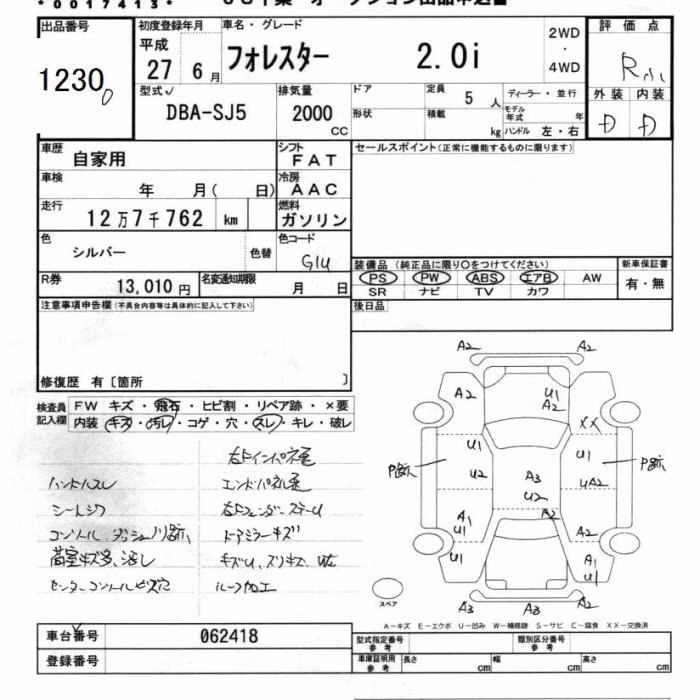 *0017413*
出品番号
1230
初度登録年月
平成
27 6月
車名・グレード
フォレスター 2.0i
2WD
・
4WD
評価点
R
外装 内装
D D
型式
DBA-SJ5
排気量
2000
CC
ドア
形状
定員
5人
積載
kg
ディーラー・並行
モデル年式 年
ハンドル 左・右
車歴
自家用
シフト
FAT
セールスポイント(正常に機能するものに限ります)
車検
年 月( 日)
冷房
AAC
走行
12万7千762 km
燃料
ガソリン
色
シルバー
色替
色コード
G1U
装備品 (純正品に限り○をつけてください)
PS PW ABS エアB AW
SR ナビ TV カワ
新車保証書
有・無
R券
13,010円
名変通知期限
月 日
後日品
注意事項申告欄(不具合内容等は具体的に記入して下さい)
修復歴 有〔箇所 〕
検査員記入欄
FW キズ・飛石・ヒビ割・リペア跡・×要
内装 キズ・汚レ・コゲ・穴・スレ・キレ・破レ
右Fインパネ
ハンドルスレ
エンドパネル
シートシワ
ドアミラーキズ
荷室キズ多、汚レ
センターコンソールビス穴
ルーフ加工
A2 A2
A2 U1
A2
XX
U1 U1
P跡 P跡
U2 A3 UA2
U2
A1 A2
U1
U1 A1
U1
A3 A2
A3
スペア
A-キズ E-エクボ U-凹み W-補修跡 S-サビ C-腐食 XX-交換済
車台番号
062418
登録番号
型式指定番号
参考
類別区分番号
参考
車庫証明用
参考
長さ cm
幅 cm
高さ cm